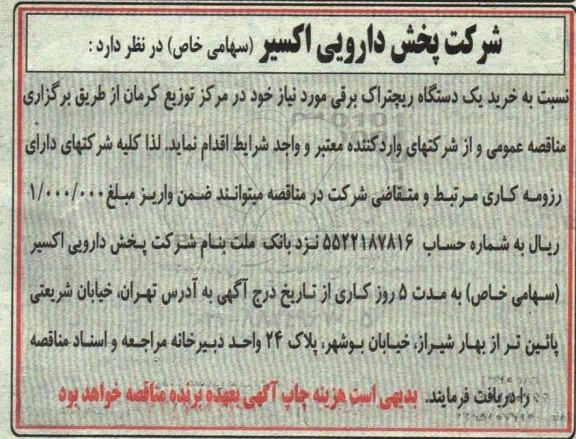 شرکت پخش دارویی اکسیر (سهامی خاص) در نظر دارد :
نسبت به خرید یک دستگاه ریچتراک برقی مورد نیاز خود در مرکز توزیع کرمان از طریق برگزاری
مناقصه عمومی و از شرکتهای وارد کننده معتبر و واجد شرایط اقدام نماید. لذا کلیه شرکتهای دارای
رزومه کاری مرتبط و متقاضی شرکت در مناقصه میتوانند ضمن واریز مبلغ ۱/۰۰۰/۰۰۰
ریال به شماره حساب ۵۵۲۲۱۸۷۸۱۶ نزد بانک ملت بنام شرکت پخش دارویی اکسیر
(سهامی خاص) به مدت ۵ روز کاری از تاریخ درج آگهی به آدرس تهران، خیابان شریعتی
پائین تر از بهار شیراز، خیابان بوشهر، پلاک ۲۴ واحد دبیرخانه مراجعه و اسناد مناقصه
را دریافت فرمایند. بدیهی است هزینه چاپ آگهی بعهده برنده مناقصه خواهد بود